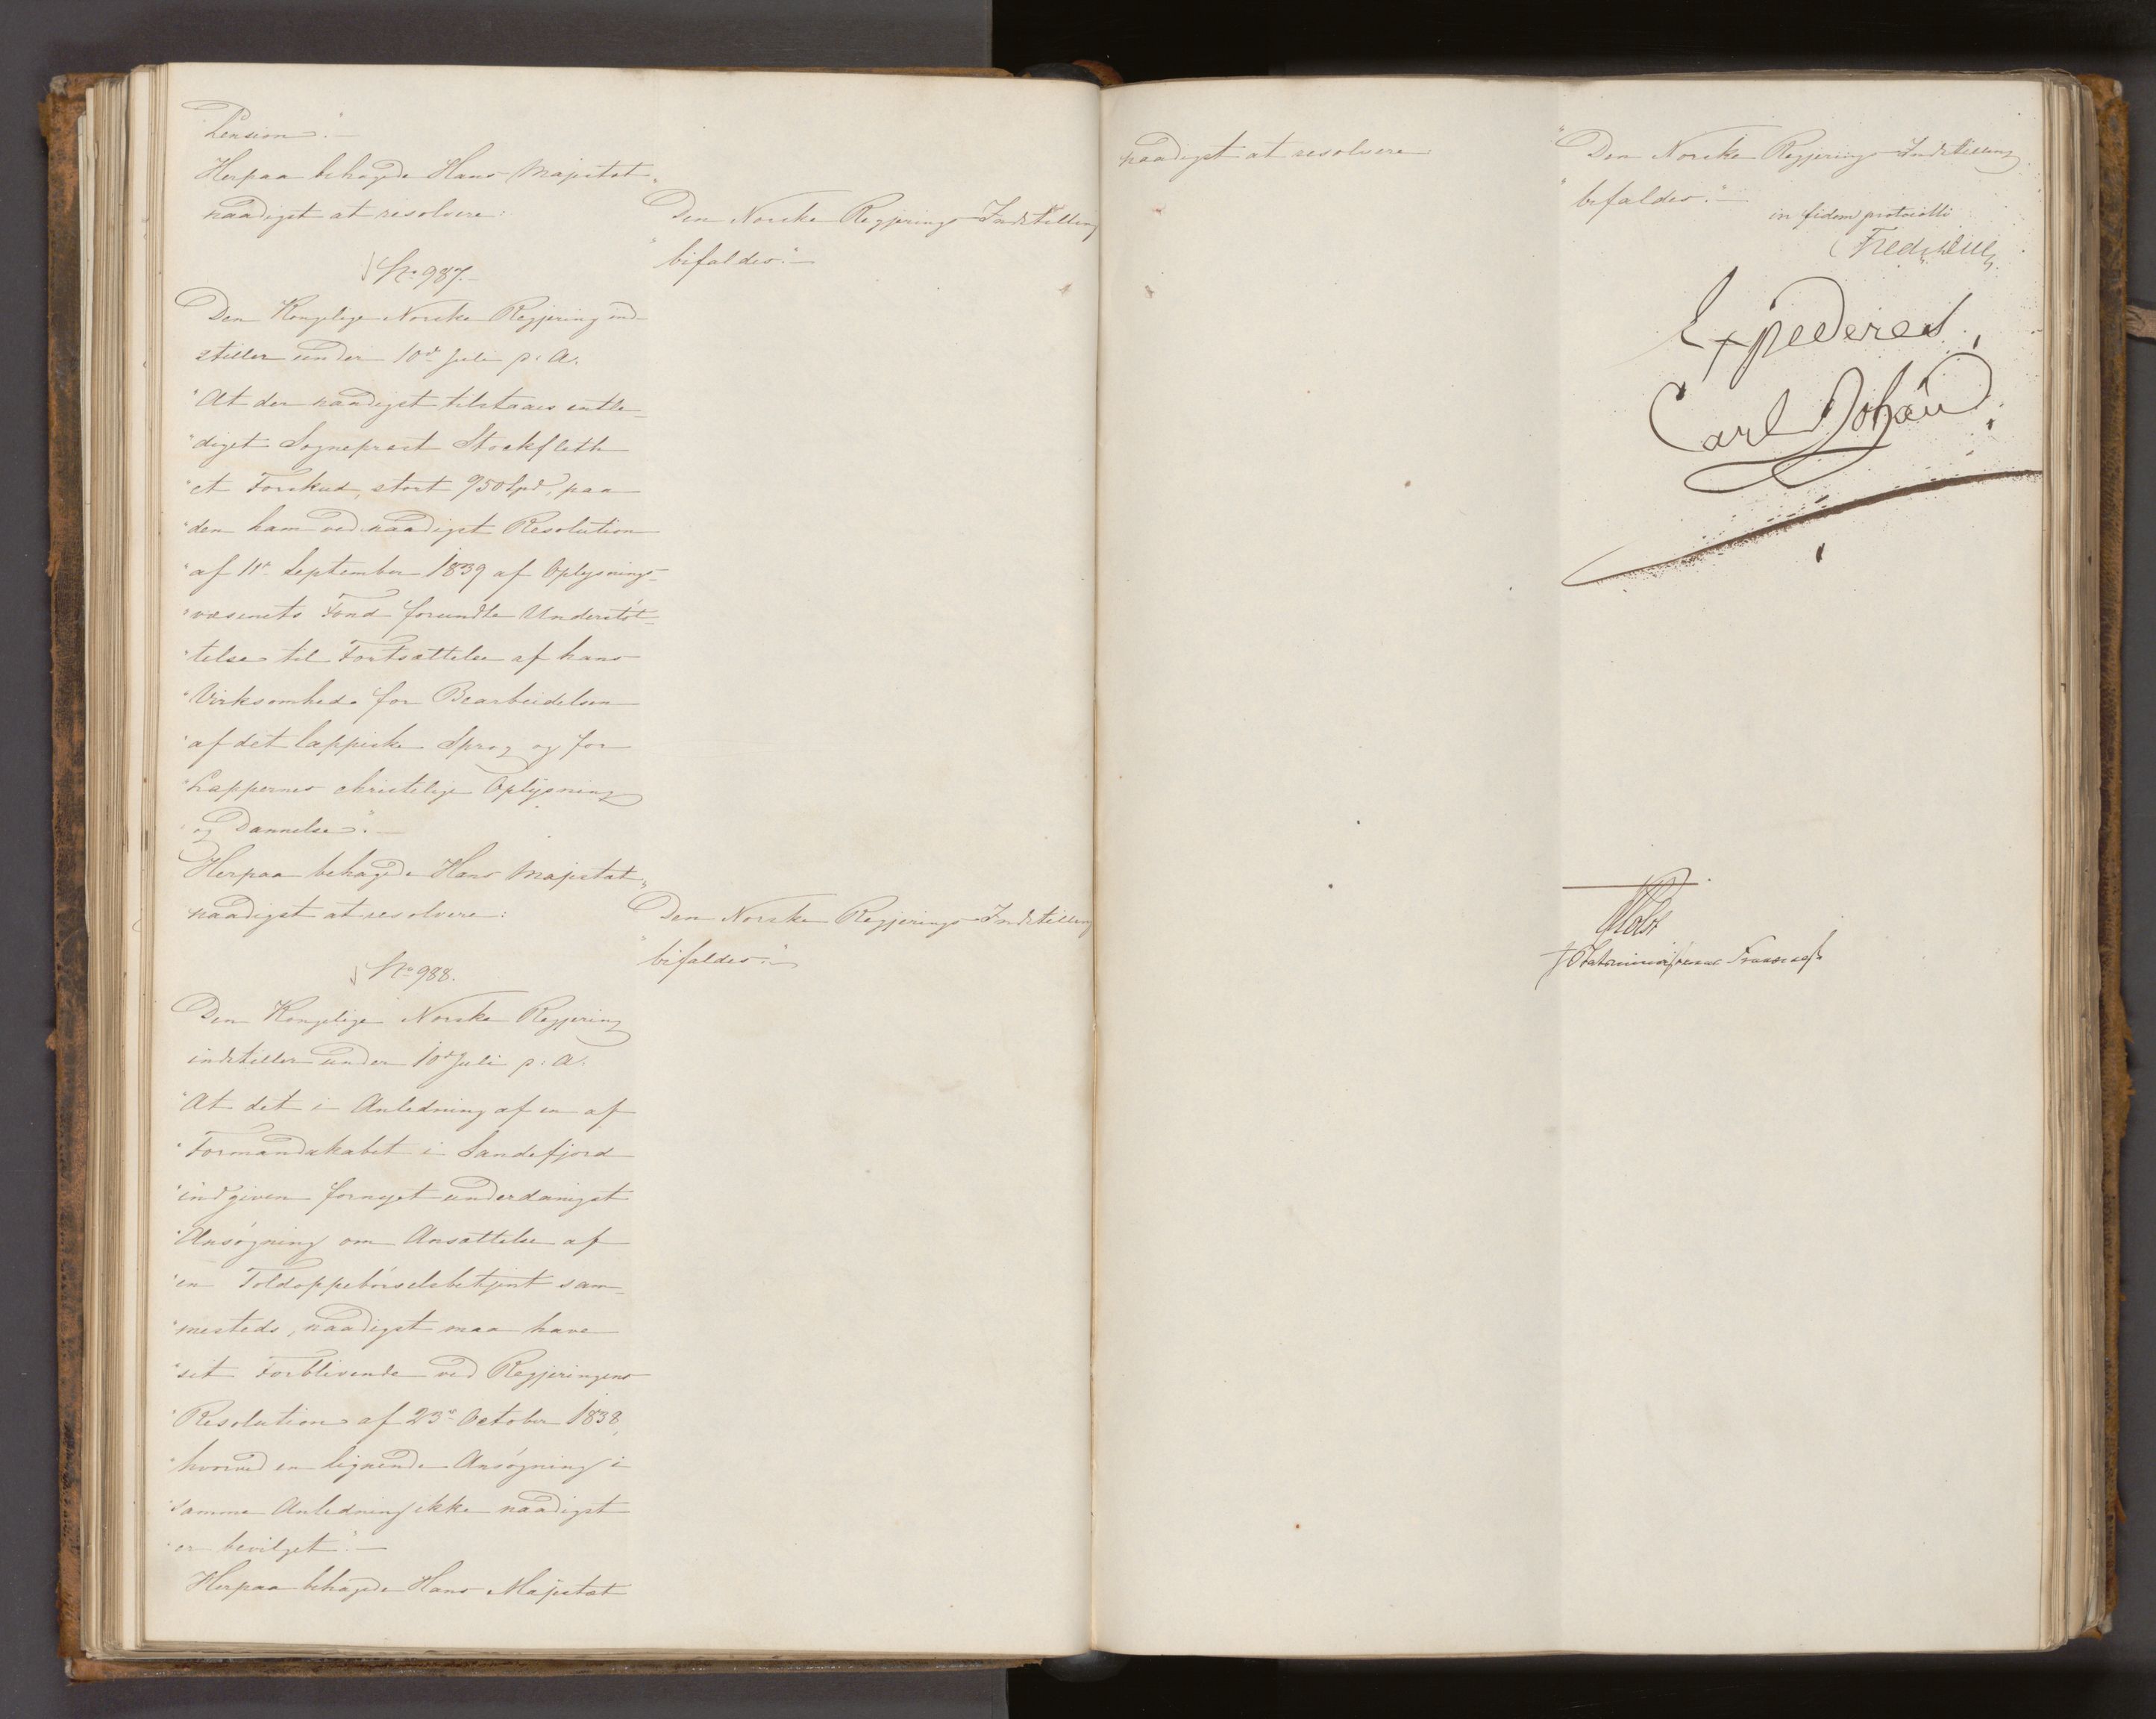 Pension".—
Herpaa behagede Hans Majestæt
naadigst at resolvere:
"Den Norske Regjerings Indstilling
"bifaldes."—
No 987.—
Den Kongelige Norske Regjering ind-
stiller under 10de Juli p: A.
"At der naadigst tilstaaes entle-
"diget Sognepræst Stockfleth
"et Forskud, stort 950 Spd, paa
"den ham ved naadigst Resolution
"af 11te September 1839 af Oplysnings-
"væsenets Fond forundte Understøt-
"telse til Fortsættelse af hans
"Virksomhed for Bearbeidelsen
"af det lappiske Sprog og for
"Lappernes christelige Oplysning
"og Dannelse".—
Herpaa behagede Hans Majestæt
naadigst at resolvere:
"Den Norske Regjerings Indstilling
"bifaldes."—
No 988.
Den Kongelige Norske Regjering
indstiller under 10de Juli p: A.
"At det i Anledning af en af
"Formandskabet i Sandefjord
"indgiven fornyet underdanigst
"Ansøgning om Ansættelse af
"en Toldoppebørselsbetjent sam-
"mesteds, naadigst maa have
"sit Forblivende ved Regjeringens
"Resolution af 23de October 1838,
"hvorved en lignende Ansøgning i
"samme Anledning ikke naadigst
"er bevilget".—
Herpaa behagede Hans Majestæt
naadigst at resolvere
"Den Norske Regjerings Indstilling
"bifaldes."—
in fidem protocolli
Expederes
Carl Johan